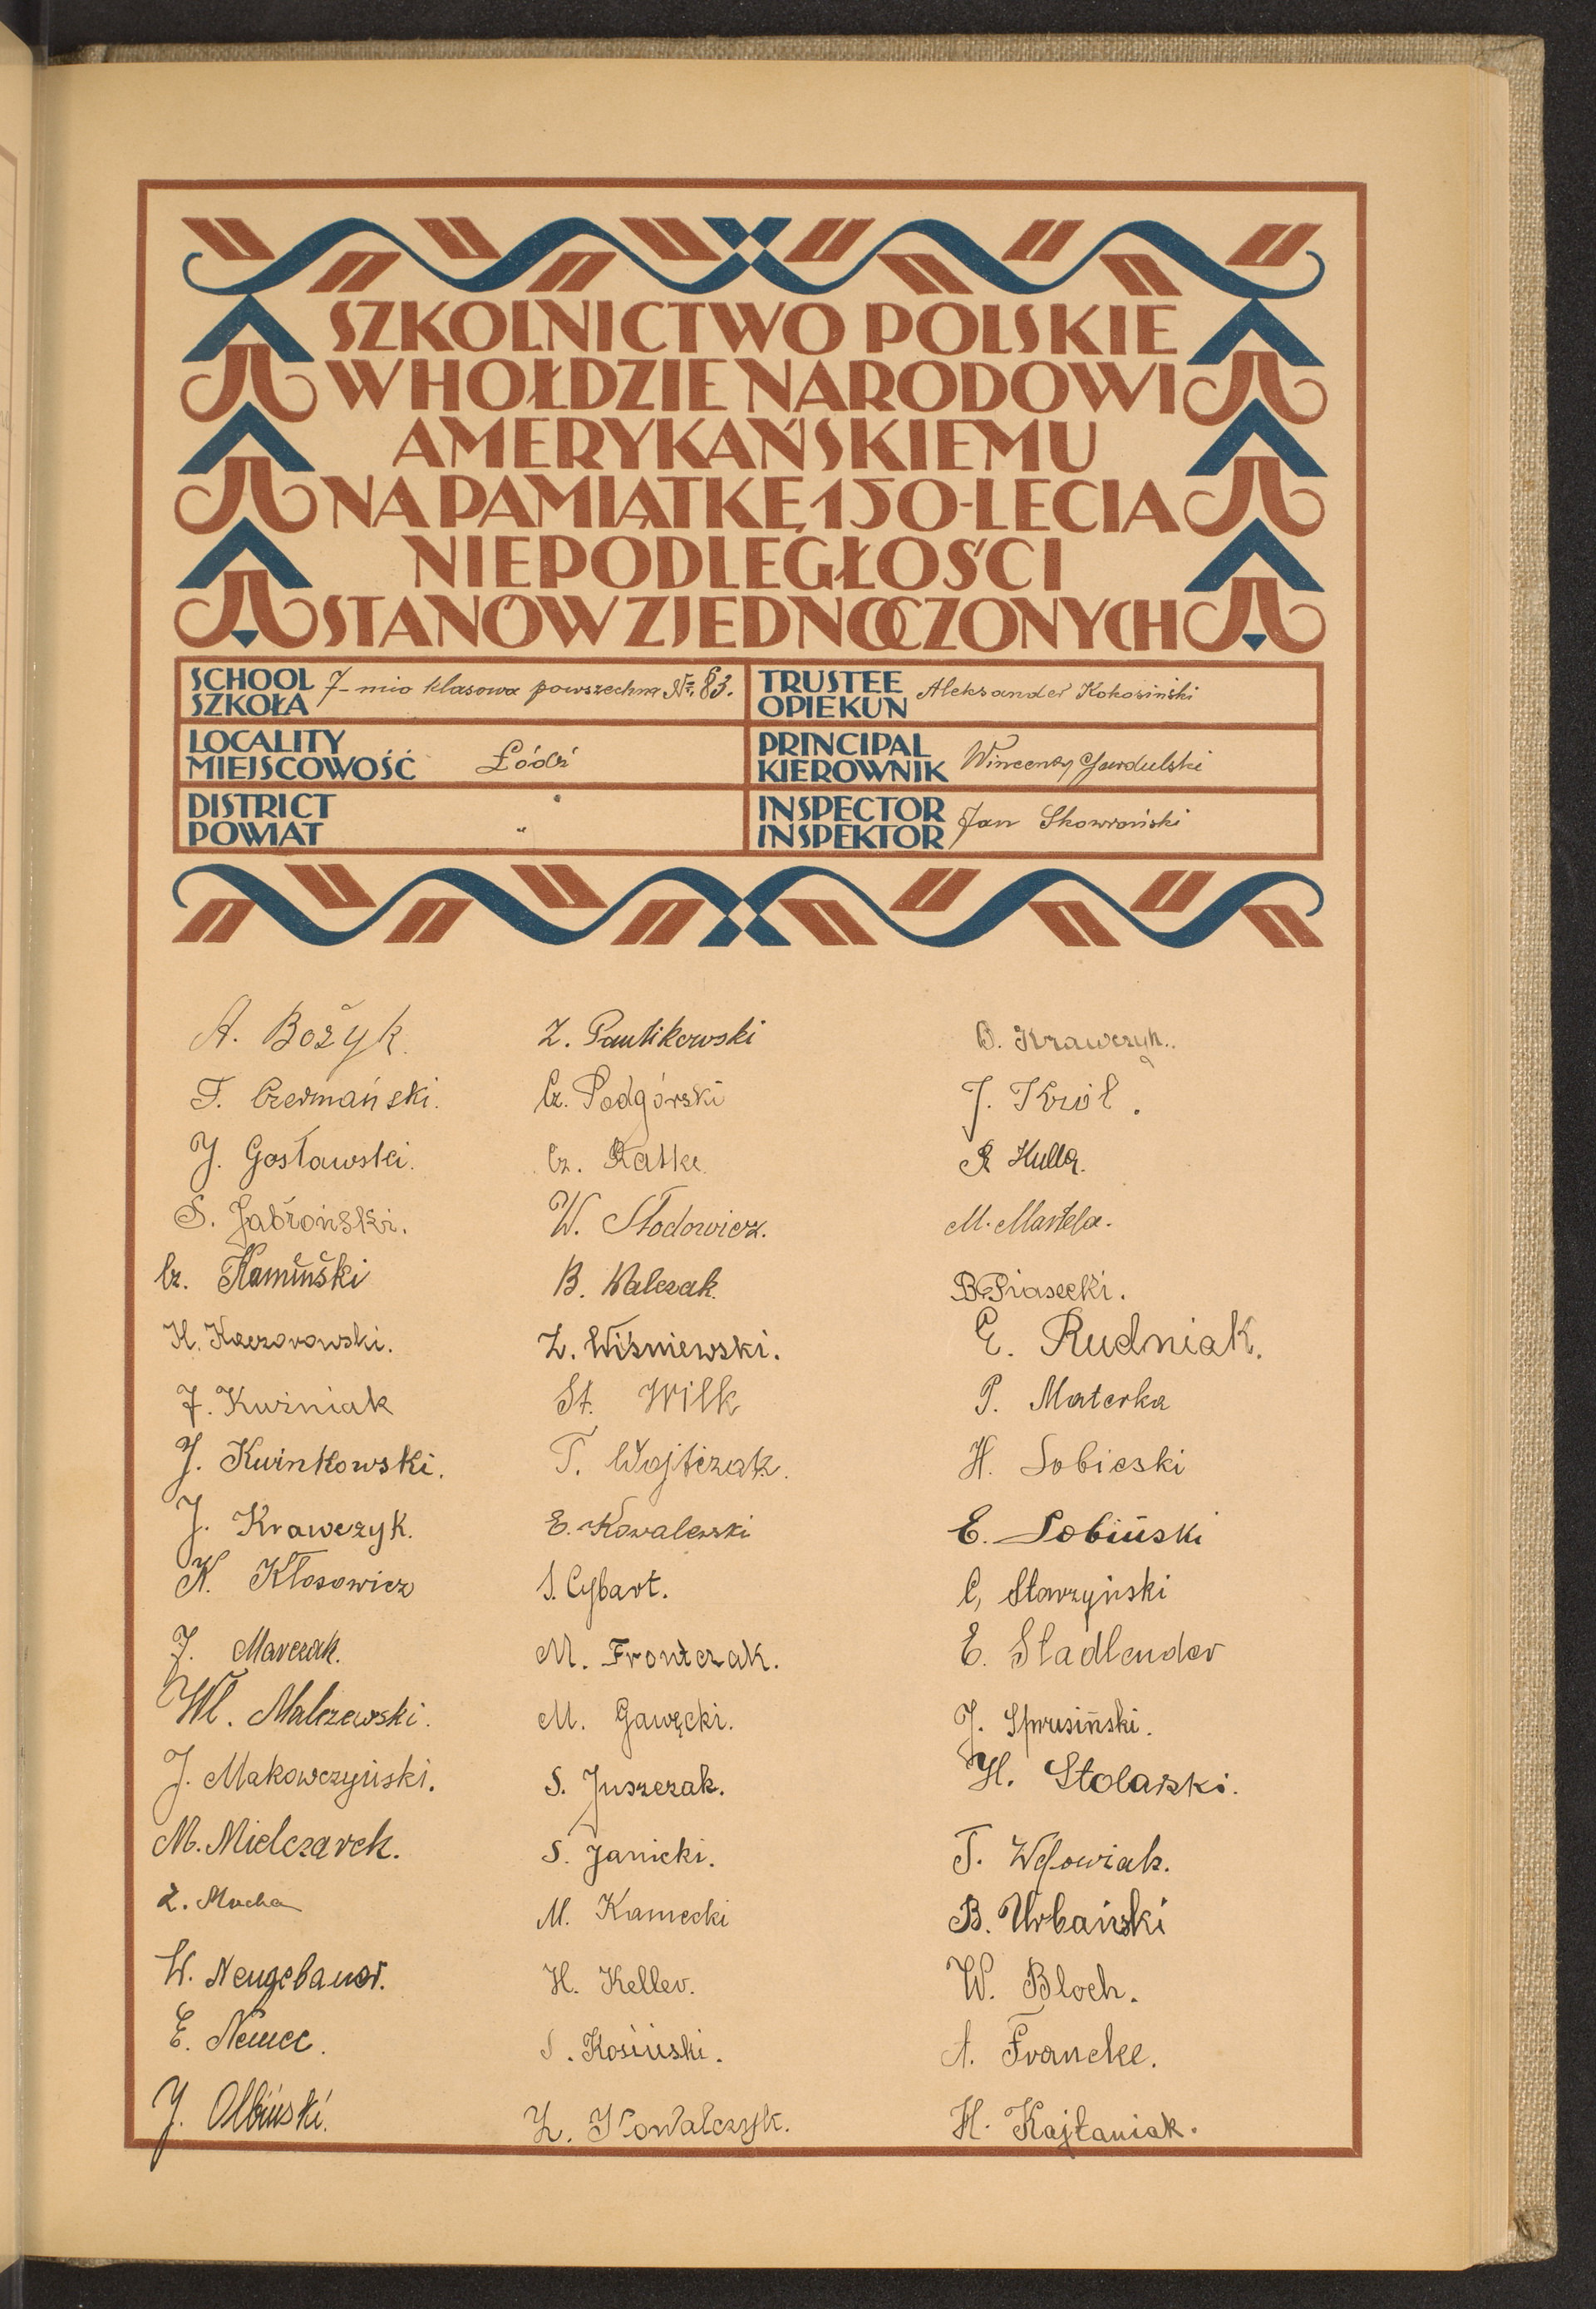 SZKOLNICTWO POLSKIE
W HOŁDZIE NARODOWI
AMERYKAŃSKIEMU
NA PAMIĄTKĘ 150-LECIA
NIEPODLEGŁOŚCI
STANÓW ZJEDNOCZONYCH
SCHOOL
SZKOŁA
7-mio klasowa powszechna Nr. 83.
TRUSTEE
OPIEKUN
Aleksander Kokosiński
LOCALITY
MIEJSCOWOŚĆ
Łódź
PRINCIPAL
KIEROWNIK
Wincenty
DISTRICT
POWIAT
"
INSPECTOR
INSPEKTOR
Jan Skowroński
A. Bożyk.
F. Czermański.
J. Gosławski.
S. Jabłoński.
Cz. Kamiński
H. Kaczorowski.
J. Kuźniak
J. Kwintkowski.
J. Krawczyk.
K. Kłosowicz
J. Marczak.
Wł. Malczewski.
J. Makowczyński.
M. Mielczarek.
Z. Mucha
W. Neugebauer.
E. Nemec.
J. Olbiński.
Z. Pawlikowski
Cz. Podgórski
Cz. Ratke
W. Słodowicz.
B. Walczak.
Z. Wiśniewski.
St. Wilk
T. Wojtczak.
E. Kowalewski
S. Cybart.
M. Frontczak.
M. Gawęcki.
S. Juszczak.
S. Janicki.
M. Kamecki
H. Keller.
S. Kosiński.
Z. Kowalczyk.
O. Krawczyk.
J. Król.
R. Kulla.
M. Mastela.
B. Piasecki.
E. Rudniak.
P. Materka
H. Sobieski
E. Sobiński
C. Starzyński
E. Stadlender
J. Sprusiński.
H. Stolarski.
T.
B. Urbański
W. Bloch.
A. Francke.
H. Kajtaniak.